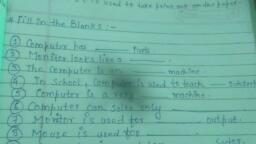 is used to take print out on the paper.
* Fill in the Blanks :-
① Computer has ______ Parts.
② Monitor looks like a ______.
③ The Computer is an ______ machine.
④ In School, Computer is used to teach ____
⑤ Computer is a very ______ machine.
⑥ Computer can solve only
⑦ Monitor is used for ______ output.
⑧ Mouse is used for ______